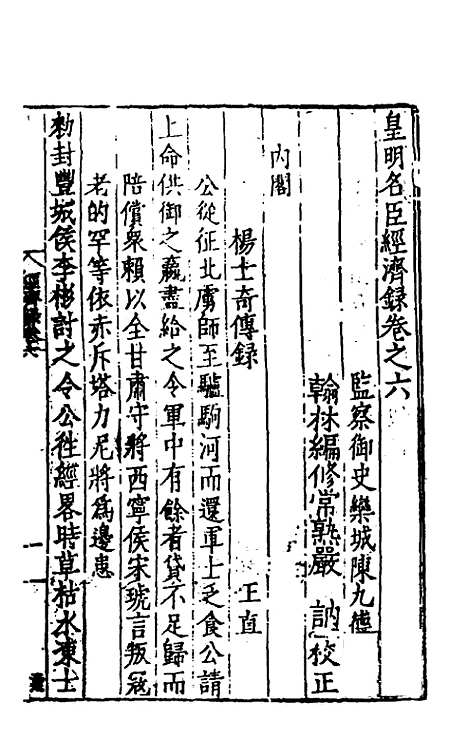 皇明名臣經濟錄卷之六
監察御史欒城陳九德
翰林編修常熟嚴 訥校正
內閣
楊士奇傳錄 王直
公從征北虜師至驢駒河而還軍士乏食公請
上命供御之羸盡給之令軍中有餘者貸不足歸而
陪償衆賴以全甘肅守將西寧侯宋琥言叛冦
老的罕等依赤斥塔力尼將為邊患
勑封豐城侯李彬討之令公徃經畧時草枯水凍士
經濟錄卷六
一